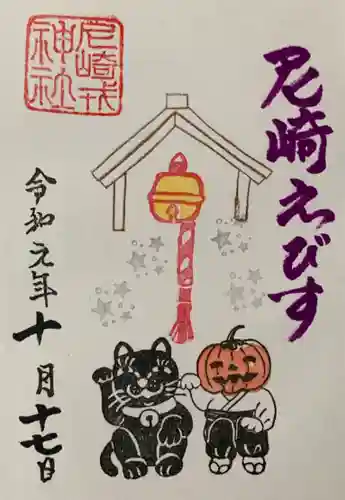 尼崎えびす
尼崎戎
神社
令和元年十月十七日